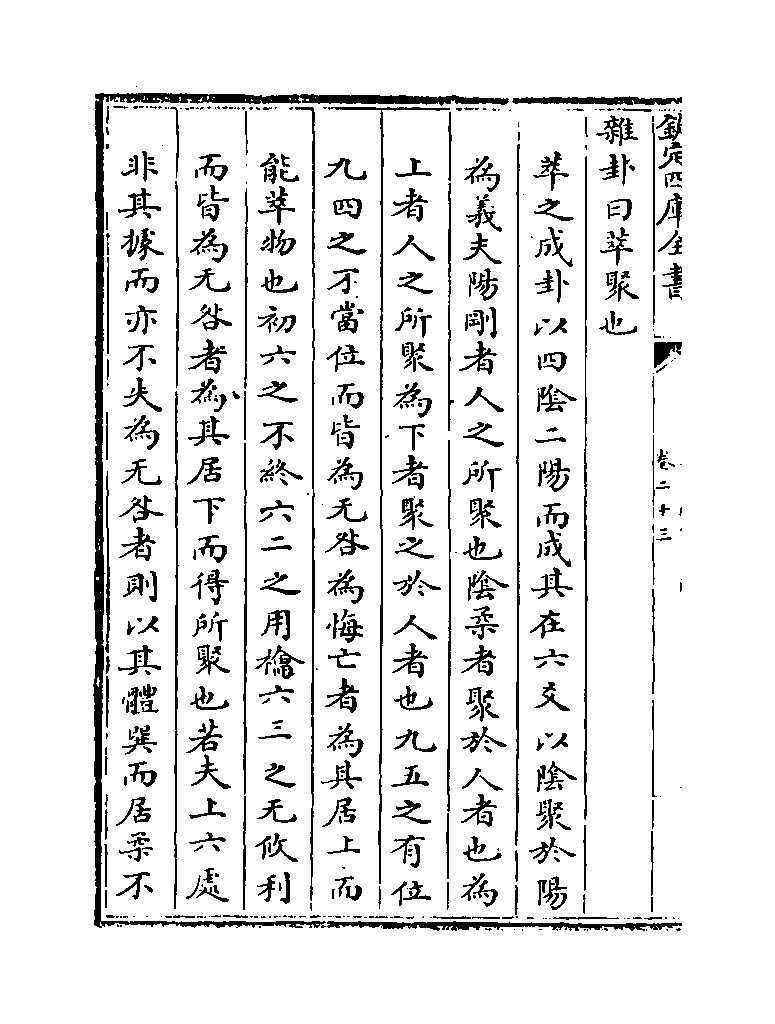 欽定四庫全書
卷二十三
雜卦曰萃聚也
萃之成卦以四陰二陽而成其在六爻以陰聚於陽
為義夫陽剛者人之所聚也陰柔者聚於人者也為
上者人之所聚為下者聚之於人者也九五之有位
九四之不當位而皆為无咎為悔亡者為其居上而
能萃物也初六之不終六二之用禴六三之无攸利
而皆為无咎者為其居下而得所聚也若夫上六處
非其據而亦不失為无咎者則以其體巽而居柔不